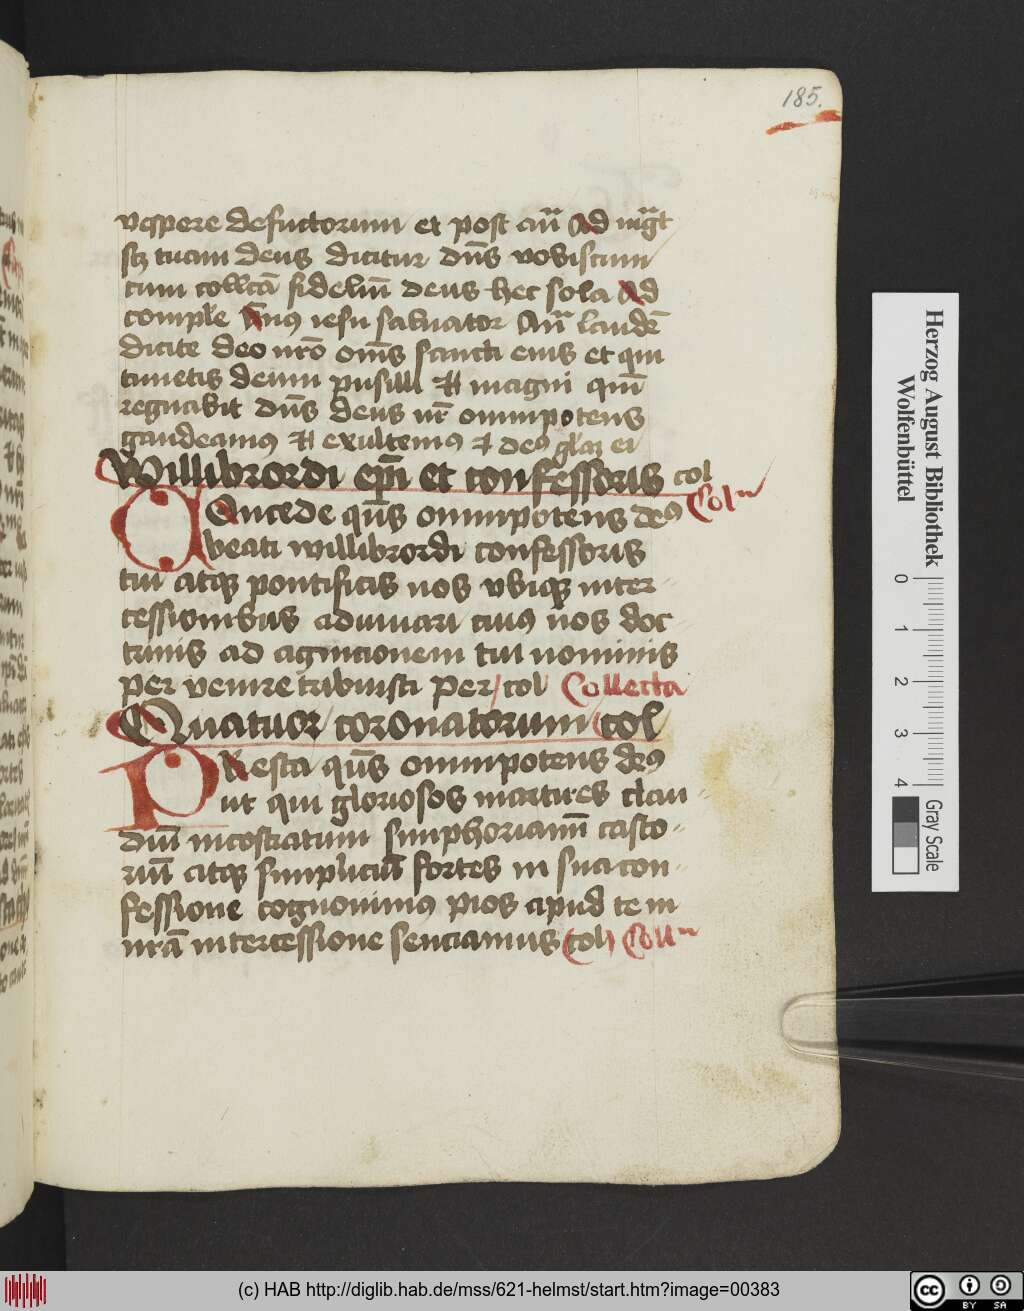 185.
vespere defuctorum et post añ Ad mgt
scz tuam deus dicitur dn̄s vobiscum
cum coll̄ca fideliū deus hec sola Ad
comple ymus iesu salvator Añ laudē
dicite deo nr̄o om̄s sancti eius et qui
timetis deum pusilli et magni qm̄
regnavit dn̄s deus nr̄ omnipotens
gaudeamus et exultemus et deus
Willibrordi ep̄i et confessoris col
Coll
Concede qs̄ omnipotens deus
beati willibrordi confessoris
tui atqȝ pontificis nos vbiqȝ inter
cessionibus adiuuari cuius nos doc
trinis ad agnicionem tui nominis
per venire tribuisti per col Collecta
Quatuor coronatorum col
Presta qs̄ omnipotens deus
ut qui gloriosos martires clau
diū nicostratum simphorianū casto
riū atqȝ simpliciū fortes in sua con
fessione cognouimus pios apud te in
nr̄a intercessione senciamus col Coll
Herzog August Bibliothek
Wolfenbüttel
0 1 2 3 4
Gray Scale
(c) HAB http://diglib.hab.de/mss/621-helmst/start.htm?image=00383
cc BY SA